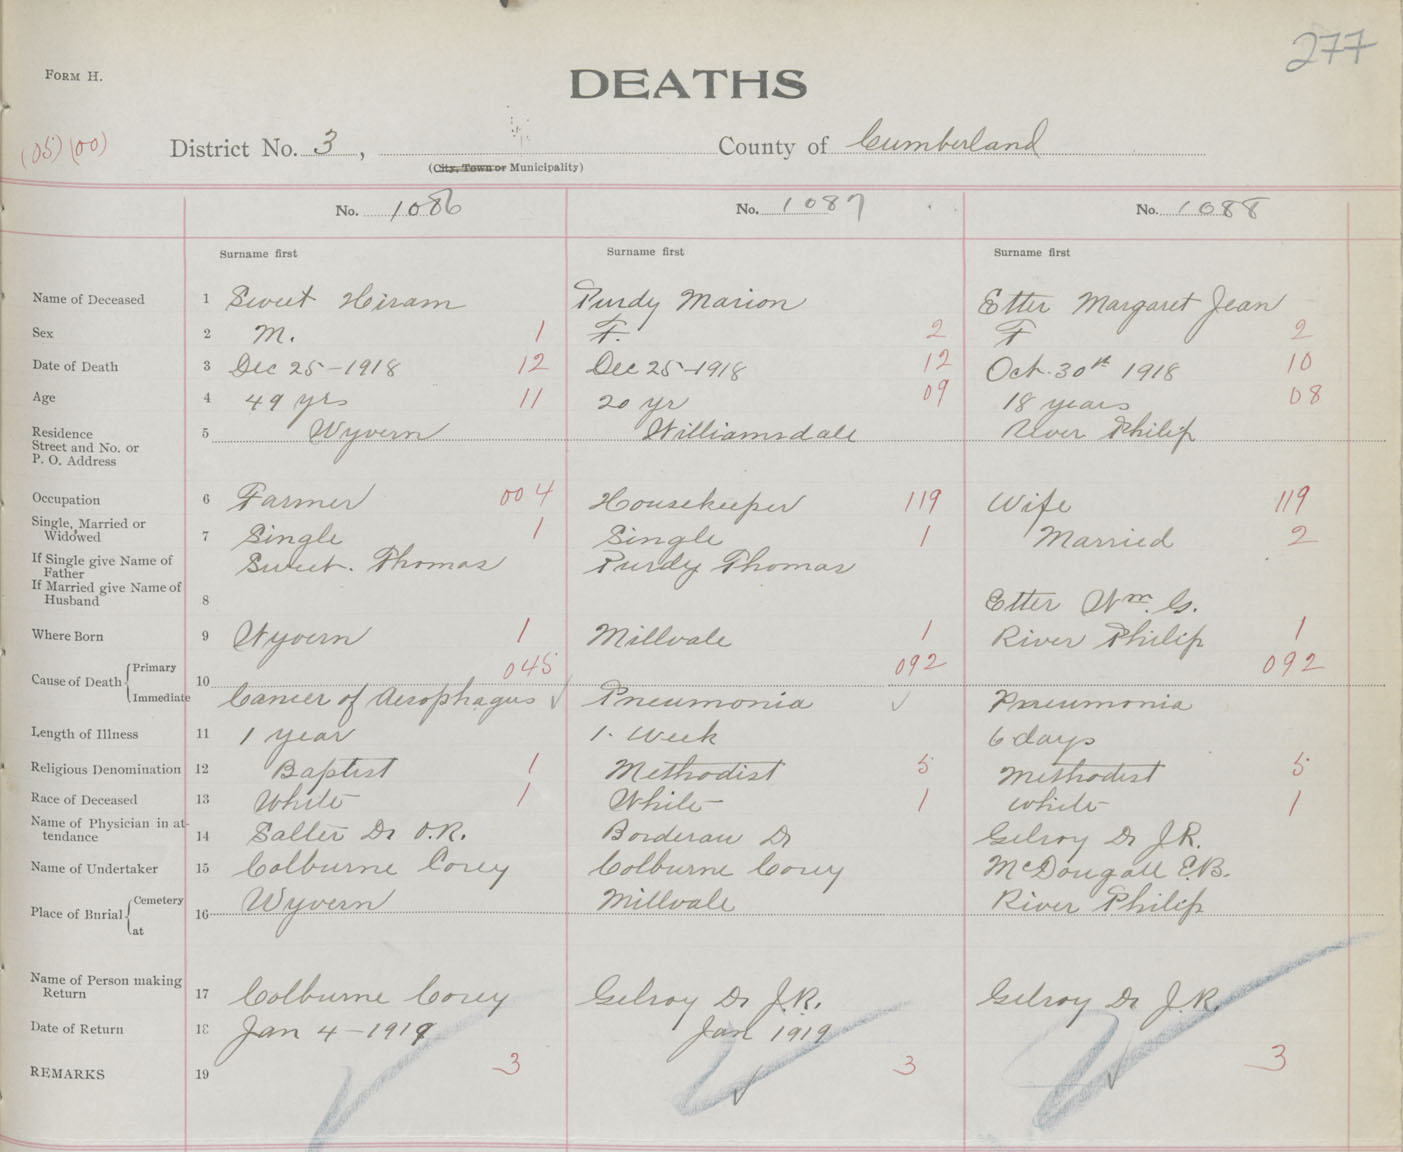 277
FORM H.
DEATHS
(05) (00)
District No. 3, County of Cumberland
(City, Town or Municipality)
No. 1086 No. 1087 No. 1088
Surname first Surname first Surname first
Name of Deceased 1 Sweet Hiram Purdy Marion Etter Margaret Jean
Sex 2 M. 1 F. 2 F 2
Date of Death 3 Dec 25-1918 12 Dec 25-1918 12 Oct. 30th 1918 10
Age 4 49 yrs 11 20 yr 09 18 years 08
Residence 5 Wyvern Williamsdale River Philip
Street and No. or
P. O. Address
Occupation 6 Farmer 004 Housekeeper 119 Wife 119
Single, Married or
Widowed 7 Single 1 Single 1 Married 2
If Single give Name of
Father Sweet. Thomas Purdy Thomas
If Married give Name of
Husband 8 Etter Wm. G.
Where Born 9 Wyvern 1 Millvale 1 River Philip 1
Cause of Death { Primary 045 092 092
Immediate 10 Cancer of Aesophagus Pneumonia Pneumonia
Length of Illness 11 1 year 1. Week 6 days
Religious Denomination 12 Baptist 1 Methodist 5 Methodist 5
Race of Deceased 13 White 1 White 1 White 1
Name of Physician in at-
tendance 14 Salter Dr O.R. Borderau Dr Gilroy Dr J.R.
Name of Undertaker 15 Colburne Corey Colburne Corey McDougall E.B.
Place of Burial { Cemetery
at 16 Wyvern Millvale River Philip
Name of Person making
Return 17 Colburne Corey Gilroy Dr J.R. Gilroy Dr J.R.
Date of Return 18 Jan 4-1919 Jan 1919
REMARKS 19 3 3 3